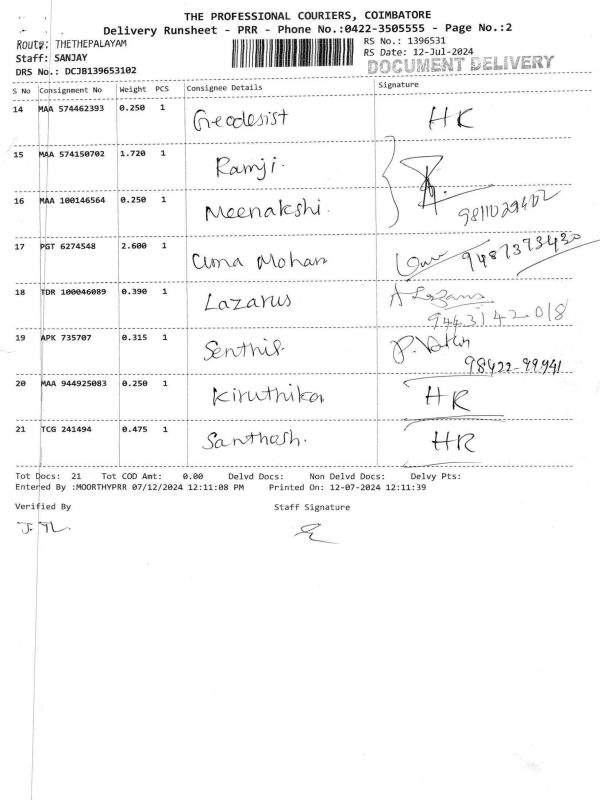 THE PROFESSIONAL COURIERS, COIMBATORE
Delivery Runsheet - PRR - Phone No.:0422-3505555 - Page No.:2
Route: THETHEPALAYAM RS No.: 1396531
Staff: SANJAY RS Date: 12-Jul-2024
DRS No.: DCJB139653102 DOCUMENT DELIVERY
S No Consignment No Weight PCS Consignee Details Signature
14 MAA 574462393 0.250 1 Geodesist HK
15 MAA 574150702 1.720 1 Ramji.
16 MAA 100146564 0.250 1 Meenakshi. 9811029402
17 PGT 6274548 2.600 1 Uma Mohan 9487373430
18 TDR 100046089 0.390 1 Lazarus A Lazarus
9443142018
19 APK 735707 0.315 1 Senthil.
98422-99941
20 MAA 944925083 0.250 1 Kiruthika HR
21 TCG 241494 0.475 1 Santhosh. HR
Tot Docs: 21 Tot COD Amt: 0.00 Delvd Docs: Non Delvd Docs: Delvy Pts:
Entered By :MOORTHYPRR 07/12/2024 12:11:08 PM Printed On: 12-07-2024 12:11:39
Verified By Staff Signature